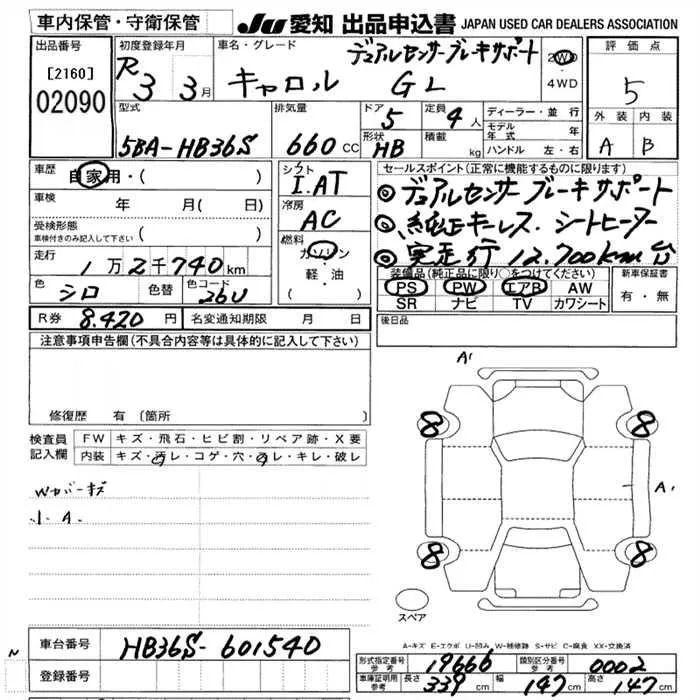 車内保管・守衛保管 JU 愛知 出品申込書 JAPAN USED CAR DEALERS ASSOCIATION
出品番号
[2160]
02090
初度登録年月
R3 3月
車名・グレード
デュアルセンサーブレーキサポート
キャロル GL
2WD・4WD
評価点
5
外装 内装
A B
型式
5BA-HB36S
排気量
660cc
ドア
5
形状
HB
定員
4人
積載
kg
ディーラー・並行
モデル年式 年
ハンドル 左・右
車歴 自家用・( )
車検 年 月( 日)
受検形態
車検付きのみ記入して下さい ( )
走行 1万2千740km
色 シロ 色替 色コード 26U
シフト
I.AT
冷房
AC
燃料
ガソリン
軽・油
セールスポイント(正常に機能するものに限ります)
◎デュアルセンサーブレーキサポート
◎純正キーレス.シートヒーター
◎実走行12,700km台
装備品(純正品に限り○をつけてください)
PS PW エアB AW
SR ナビ TV カワシート
新車保証書
有・無
R券 8.420円 名変通知期限 月 日
後日品
注意事項申告欄(不具合内容等は具体的に記入して下さい)
修復歴 有 [箇所 ]
検査員記入欄
FW キズ・飛石・ヒビ割・リペア跡・X要
内装 キズ・汚レ・コゲ・穴・スレ・キレ・破レ
Wカバーキズ
小.A.
A1
8
8
A1
8
8
スペア
A-キズ E-エクボ U-凹み W-補修跡 S-サビ C-腐食 XX-交換済
N
車台番号 HB36S-601540
登録番号
形式指定番号 参考 19666 類別区分番号 参考 0002
車庫証明用 参考 長さ 339cm 幅 147cm 高さ 147cm